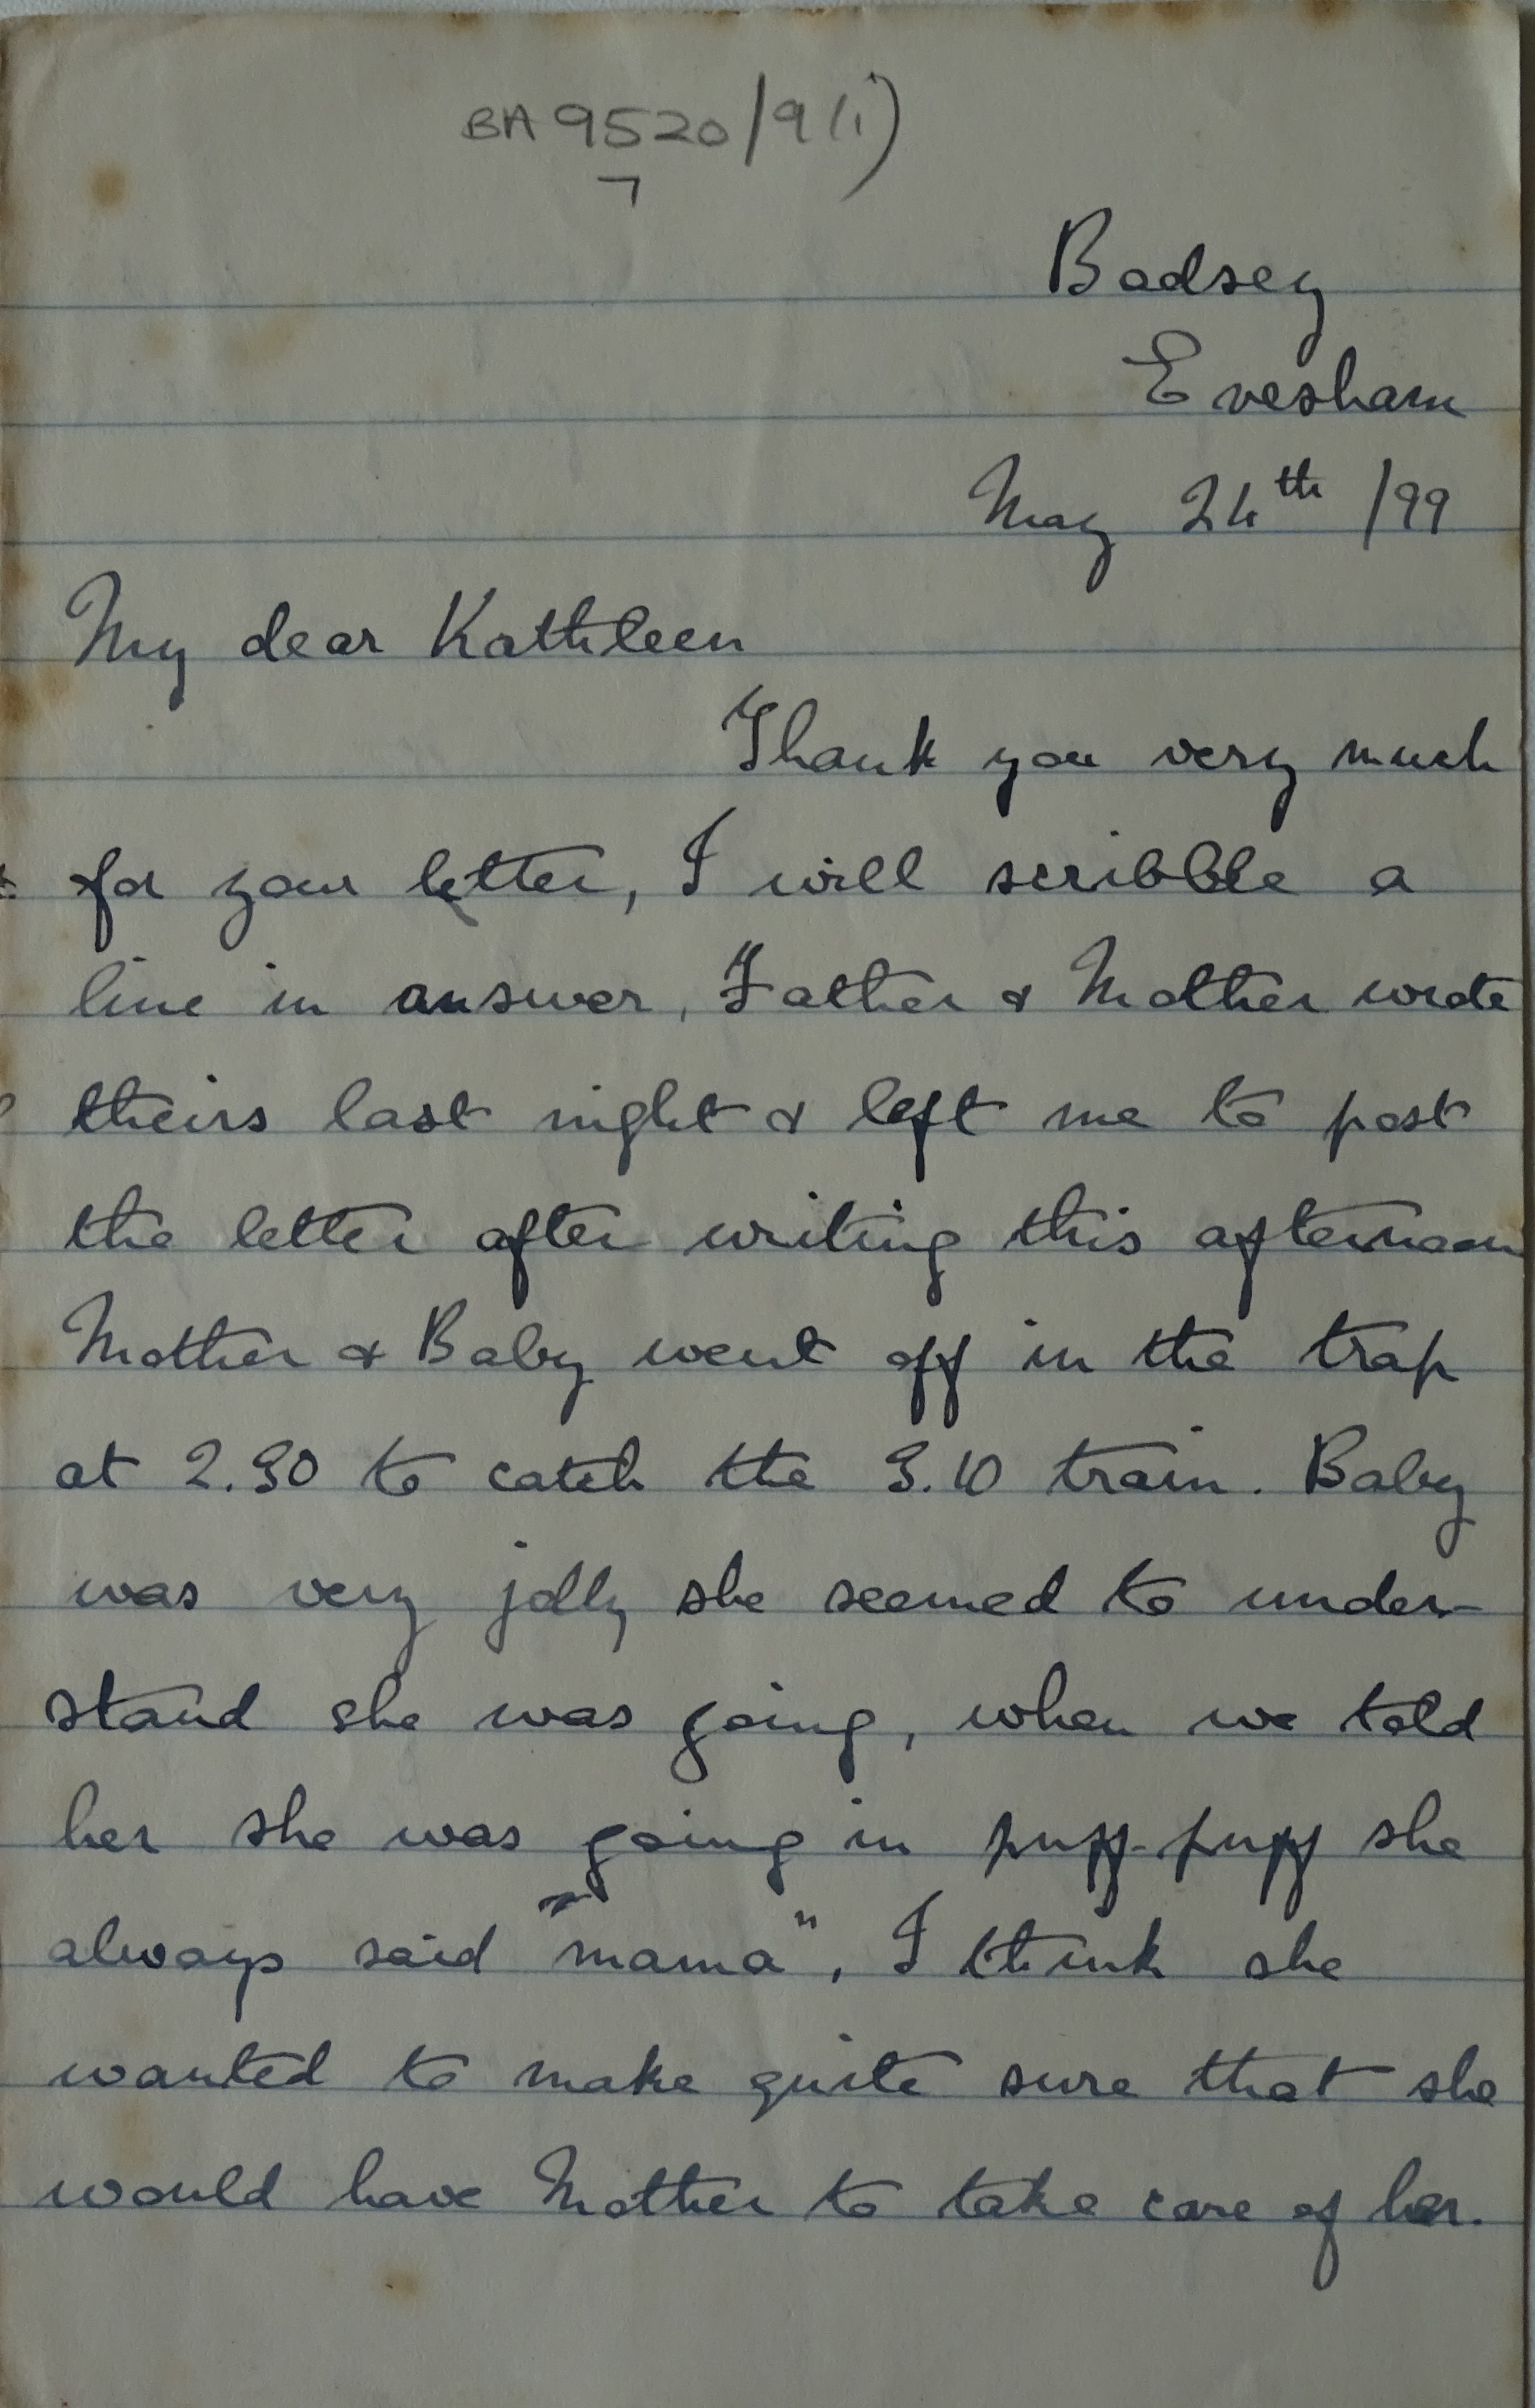 BA 9520/9 (i)
7
Badsey
Evesham
May 24th /99
My dear Kathleen
Thank you very much
for your letter, I will scribble a
line in answer, Father & Mother wrote
theirs last night & left me to post
the letter after writing this afternoon
Mother & Baby went off in the trap
at 2.30 to catch the 3.10 train. Baby
was very jolly she seemed to under-
stand she was going, when we told
her she was going in puff-puff she
always said "mama", I think she
wanted to make quite sure that she
would have Mother to take care of her.